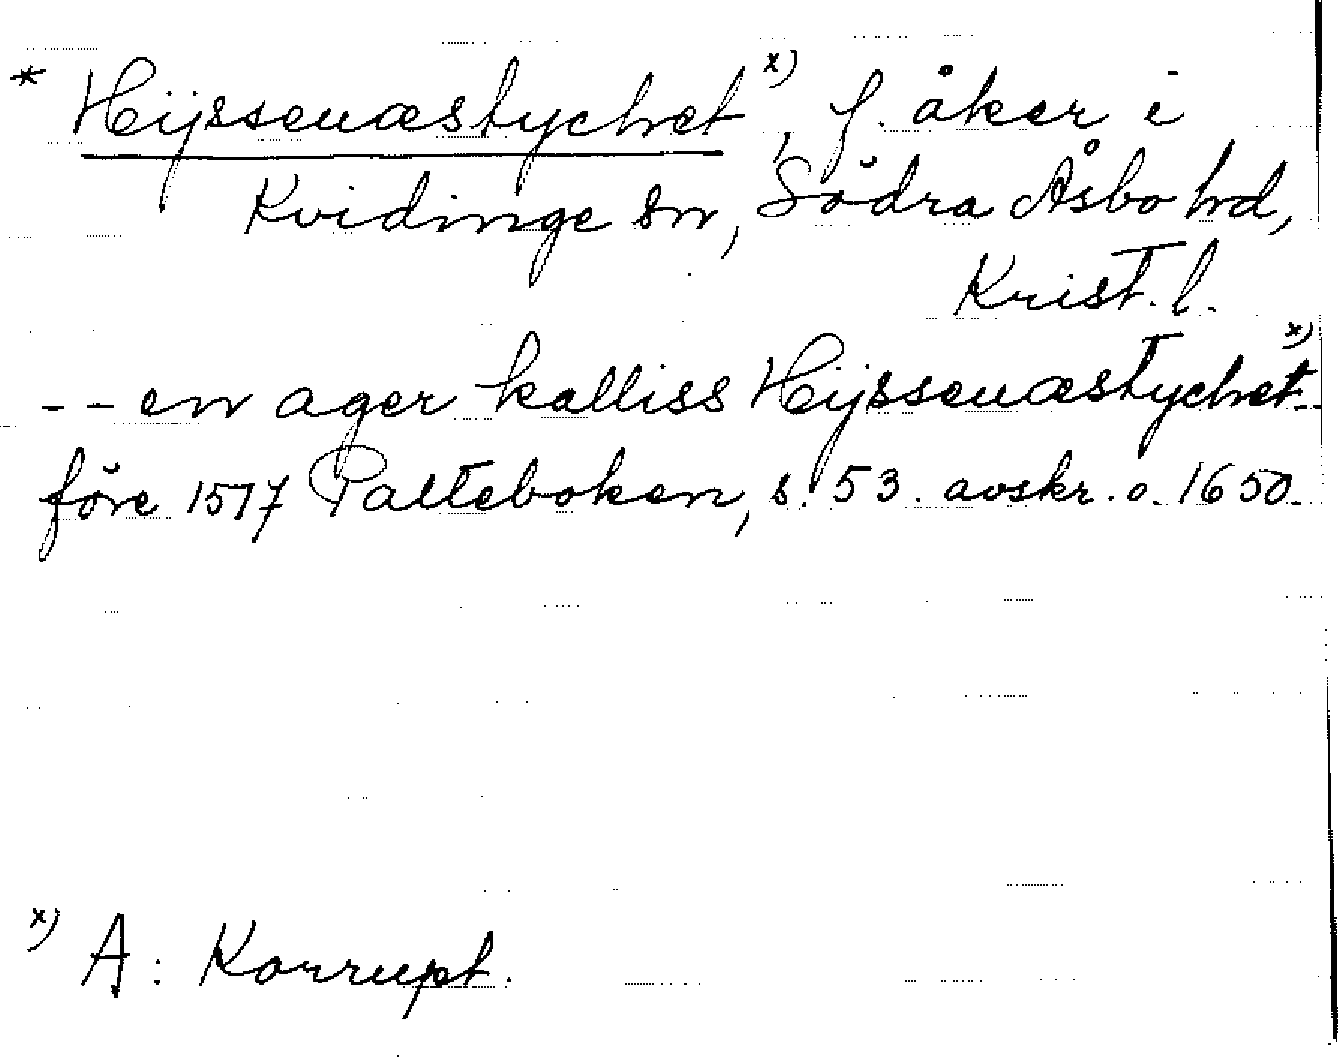 * Heijssenæstychet x), f. åker i
Kvidinge sn, Södra Åsbo hd,
Krist. l.
-- en ager kalliss Heijssenæstychet x) --
före 1517 Palteboken, s. 53. avskr. o. 1650.
x) A: Korrupt.